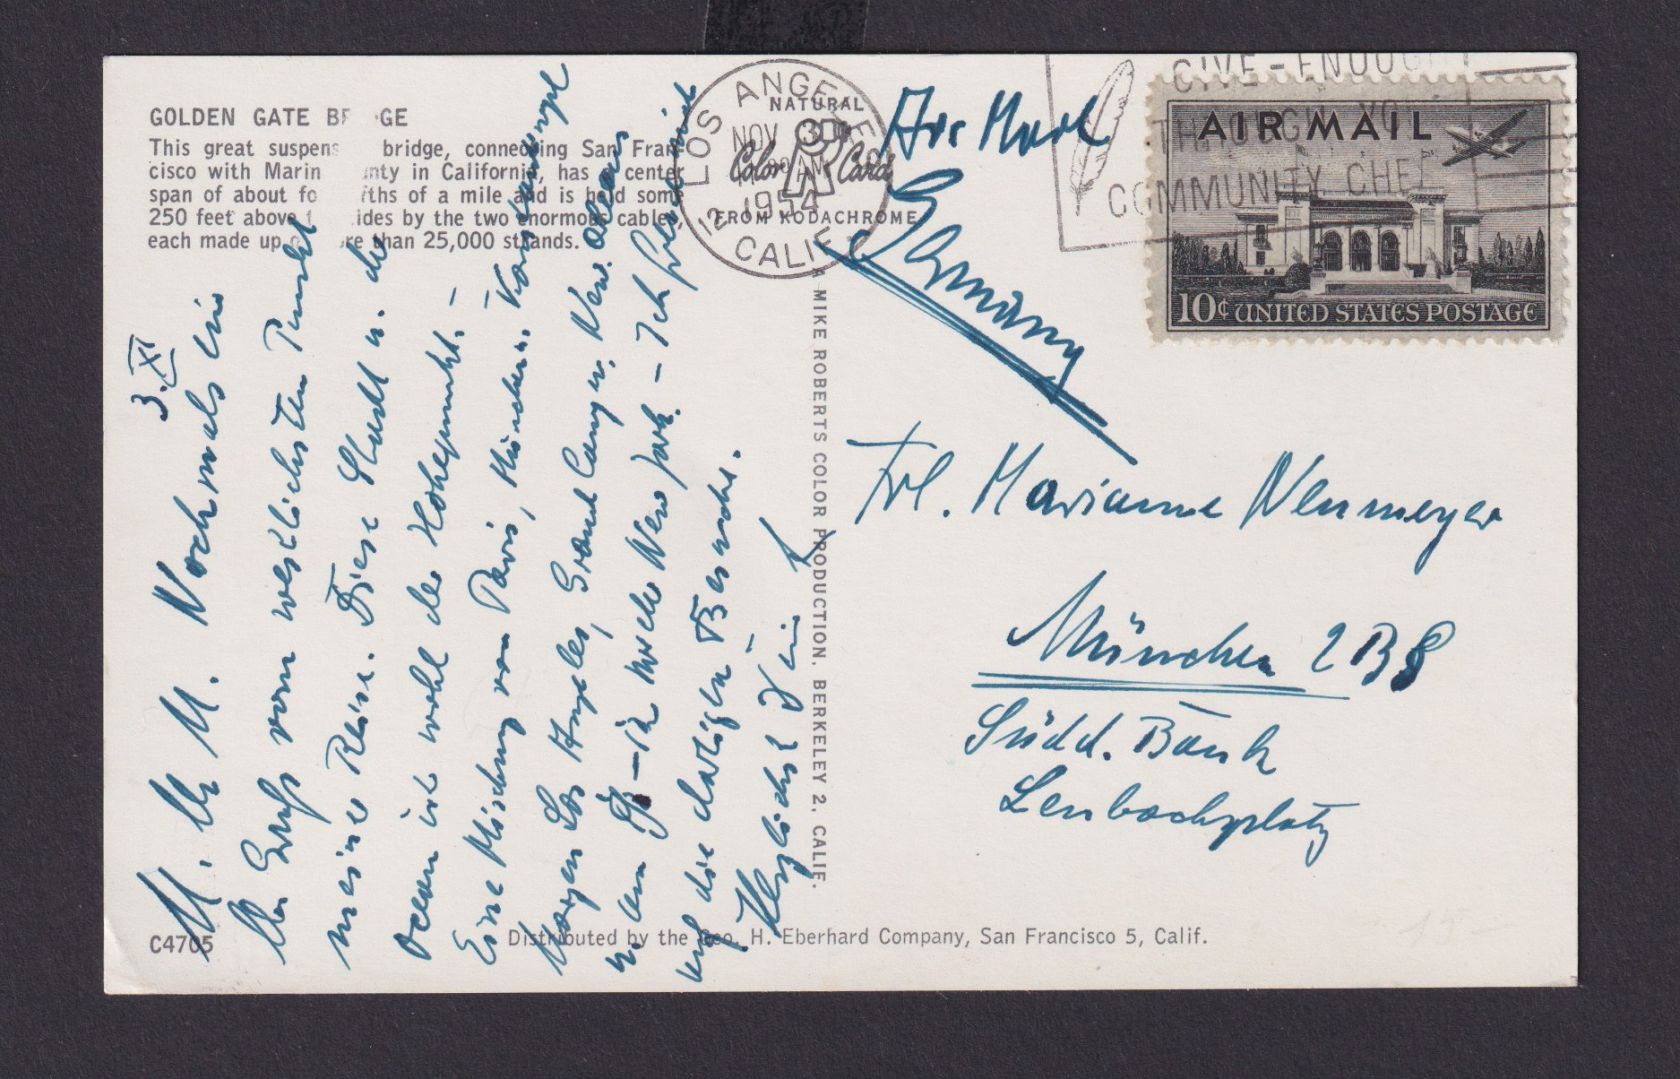 GOLDEN GATE BR GE
This great suspens bridge, connecting San Fran-
cisco with Marin nty in California, has a center
span of about fo fths of a mile and is held some
250 feet above t ides by the two enormous cables,
each made up re than 25,000 strands.
3. XI
M. M. Nochmals ein
Gruß vom westlichsten Punkt
meiner Reise. Diese Stadt u. der
Ocean ist wohl der Höhepunkt. –
Eine Mischung von Paris, München u.
Morgen Los Angeles, Grand Canyon, New Orleans
u. am – in New York. – Ich freue mich
auf die dortigen Besuche.
Herzlichst Dein
C4705
Distributed by the Geo. H. Eberhard Company, San Francisco 5, Calif.
A MIKE ROBERTS COLOR PRODUCTION, BERKELEY 2, CALIF.
NATURAL
Color Card
FROM KODACHROME
LOS ANGELES
NOV 3
AM
1954
12
CALIF.
GIVE - ENOUGH
THROUGH YOUR
COMMUNITY CHEST
AIR MAIL
10¢ UNITED STATES POSTAGE
Air Mail
Germany
Frl. Marianne Neumeyer
München 2 BS
Südd. Bank
Lenbachplatz